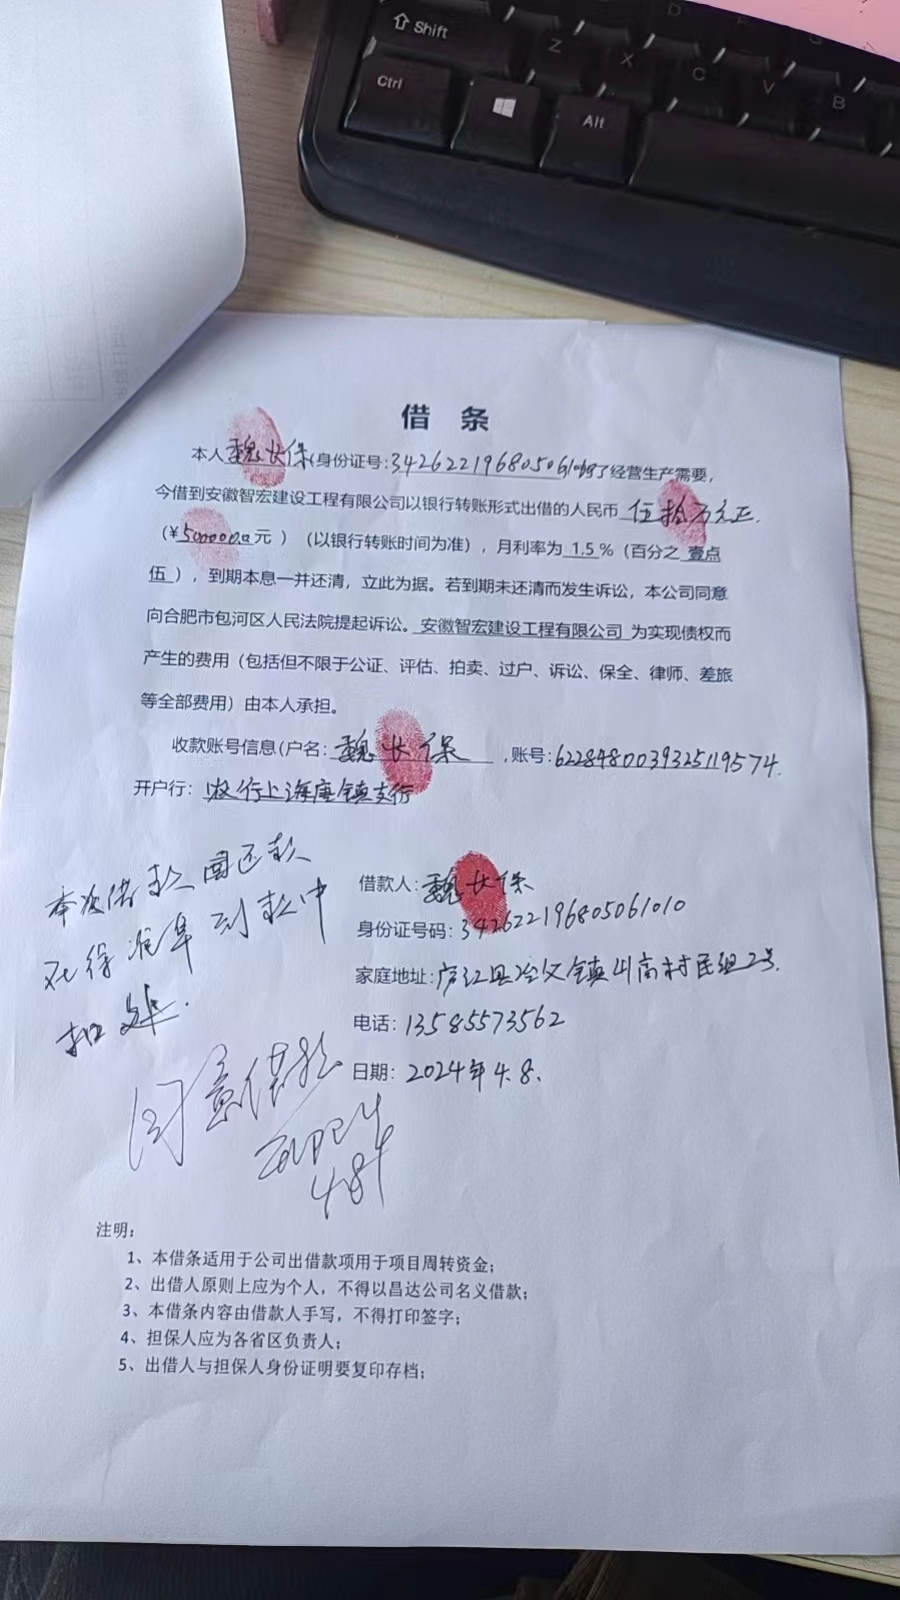 Shift
Z
X
C
V
B
Ctrl
Alt
借 条
本人魏长保(身份证号:342622196805061010为了经营生产需要，
今借到安徽智宏建设工程有限公司以银行转账形式出借的人民币 伍拾万元正.
（¥500000.00元 ）（以银行转账时间为准），月利率为 1.5 %（百分之 壹点
伍 ），到期本息一并还清，立此为据。若到期未还清而发生诉讼，本公司同意
向合肥市包河区人民法院提起诉讼。安徽智宏建设工程有限公司 为实现债权而
产生的费用（包括但不限于公证、评估、拍卖、过户、诉讼、保全、律师、差旅
等全部费用）由本人承担。
收款账号信息(户名：魏长保 ,账号:6228480039325119574.
开户行： 农行上海唐镇支行
本次借款
到款中
扣
借款人：魏长保
身份证号码：342622196805061010
家庭地址：庐江县 镇 村民组2号.
电话：13585573562
日期：2024年4.8.
同意借款
注明：
1、本借条适用于公司出借款项用于项目周转资金；
2、出借人原则上应为个人，不得以昌达公司名义借款；
3、本借条内容由借款人手写，不得打印签字；
4、担保人应为各省区负责人；
5、出借人与担保人身份证明要复印存档；